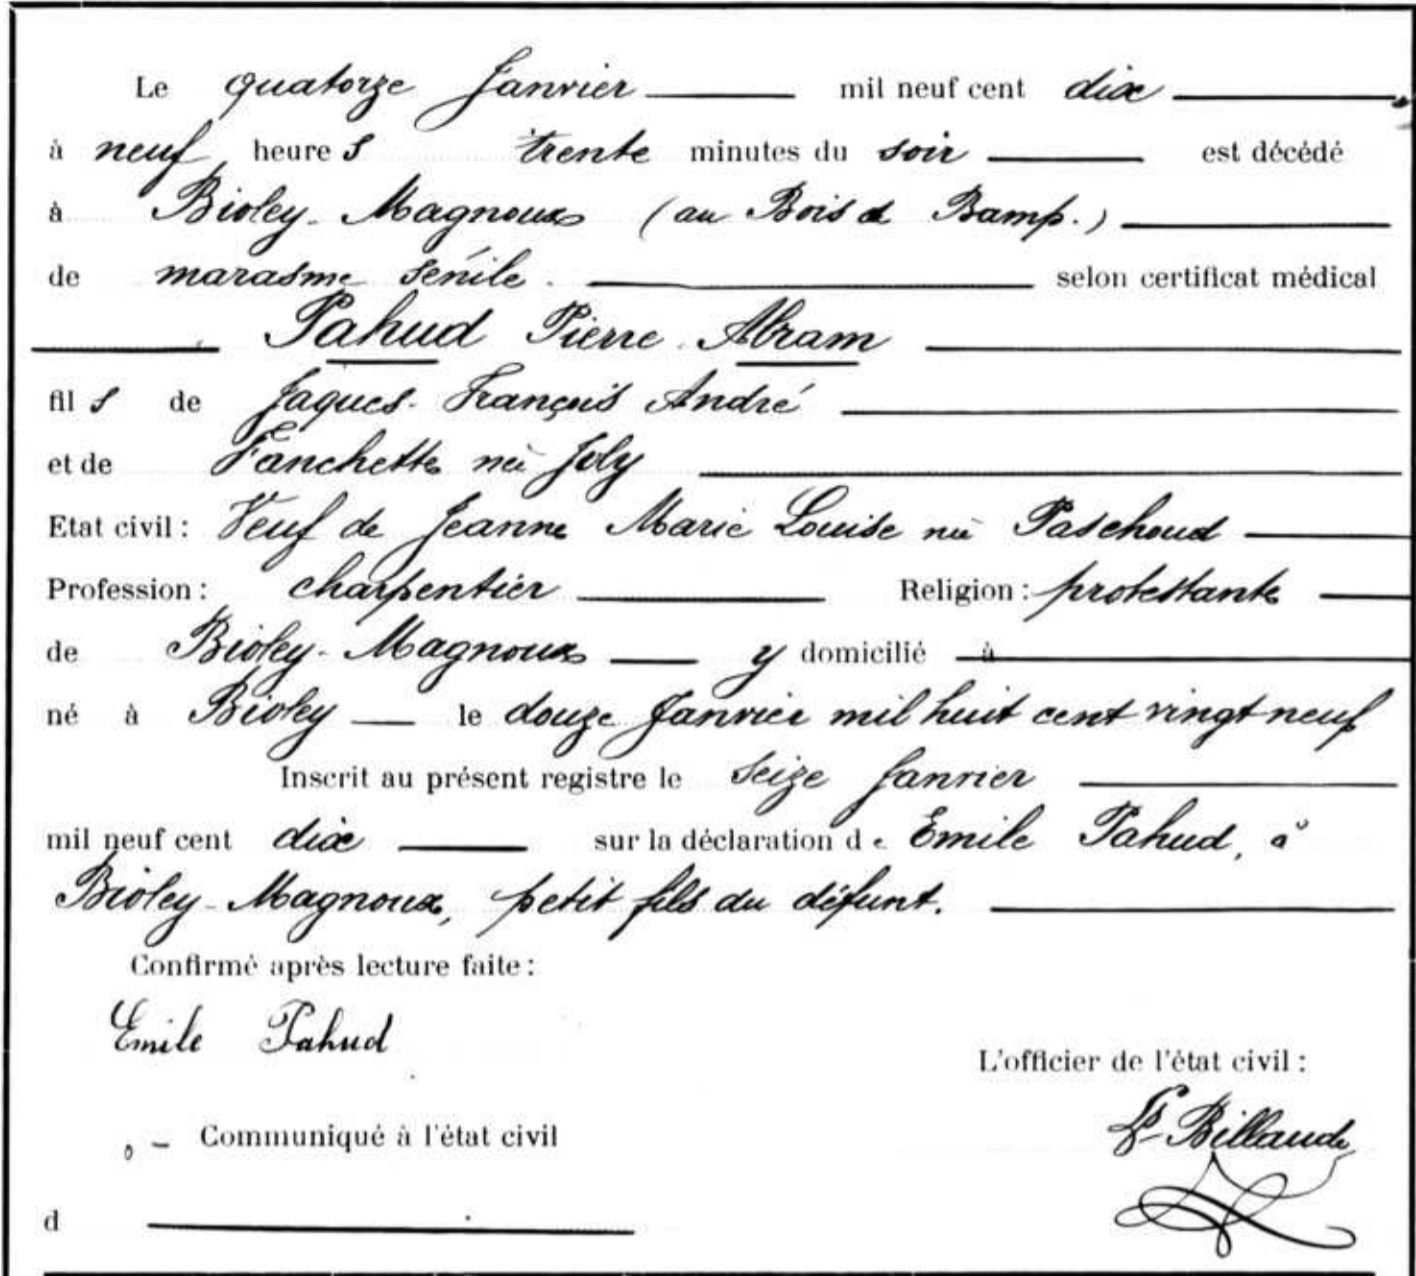 Le quatorze Janvier mil neuf cent dix
à neuf heures trente minutes du soir est décédé
à Bioley-Magnoux (au Bois d Bamp.)
de marasme sénile. selon certificat médical
Pahud Pierre-Abram
fils de Jaques-François André
et de Fanchette née Joly
Etat civil : Veuf de Jeanne Marie Louise née Paschoud
Profession : charpentier Religion : protestante
de Bioley-Magnoux y domicilié à
né à Bioley le douze Janvier mil huit cent vingt neuf
Inscrit au présent registre le seize Janvier
mil neuf cent dix sur la déclaration de Emile Pahud, à
Bioley-Magnoux, petit fils du défunt.
Confirmé après lecture faite :
Emile Pahud
L'officier de l'état civil :
Communiqué à l'état civil
Billaud
d